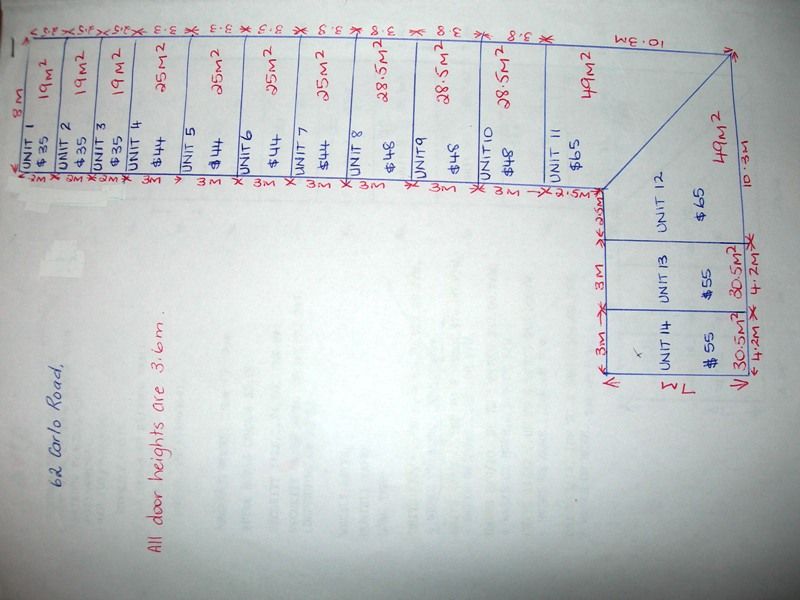 2.5
2.5
2.5
3.3
3.3
3.3
3.3
3.8
3.8
3.8
10.3M
8M
19M²
19M²
19M²
25M²
25M²
25M²
25M²
28.5M²
28.5M²
28.5M²
49M²
UNIT 1
$35
UNIT 2
$35
UNIT 3
$35
UNIT 4
$44
UNIT 5
$44
UNIT 6
$44
UNIT 7
$44
UNIT 8
$48
UNIT 9
$48
UNIT 10
$48
UNIT 11
$65
2M
2M
2M
3M
3M
3M
3M
3M
3M
3M
2.5M
2.5M
UNIT 12
$65
49M²
10.3M
3M
UNIT 13
$55
30.5M²
4.2M
3M
UNIT 14
$55
30.5M²
4.2M
7M
62 Carlo Road,
All door heights are 3.6m.